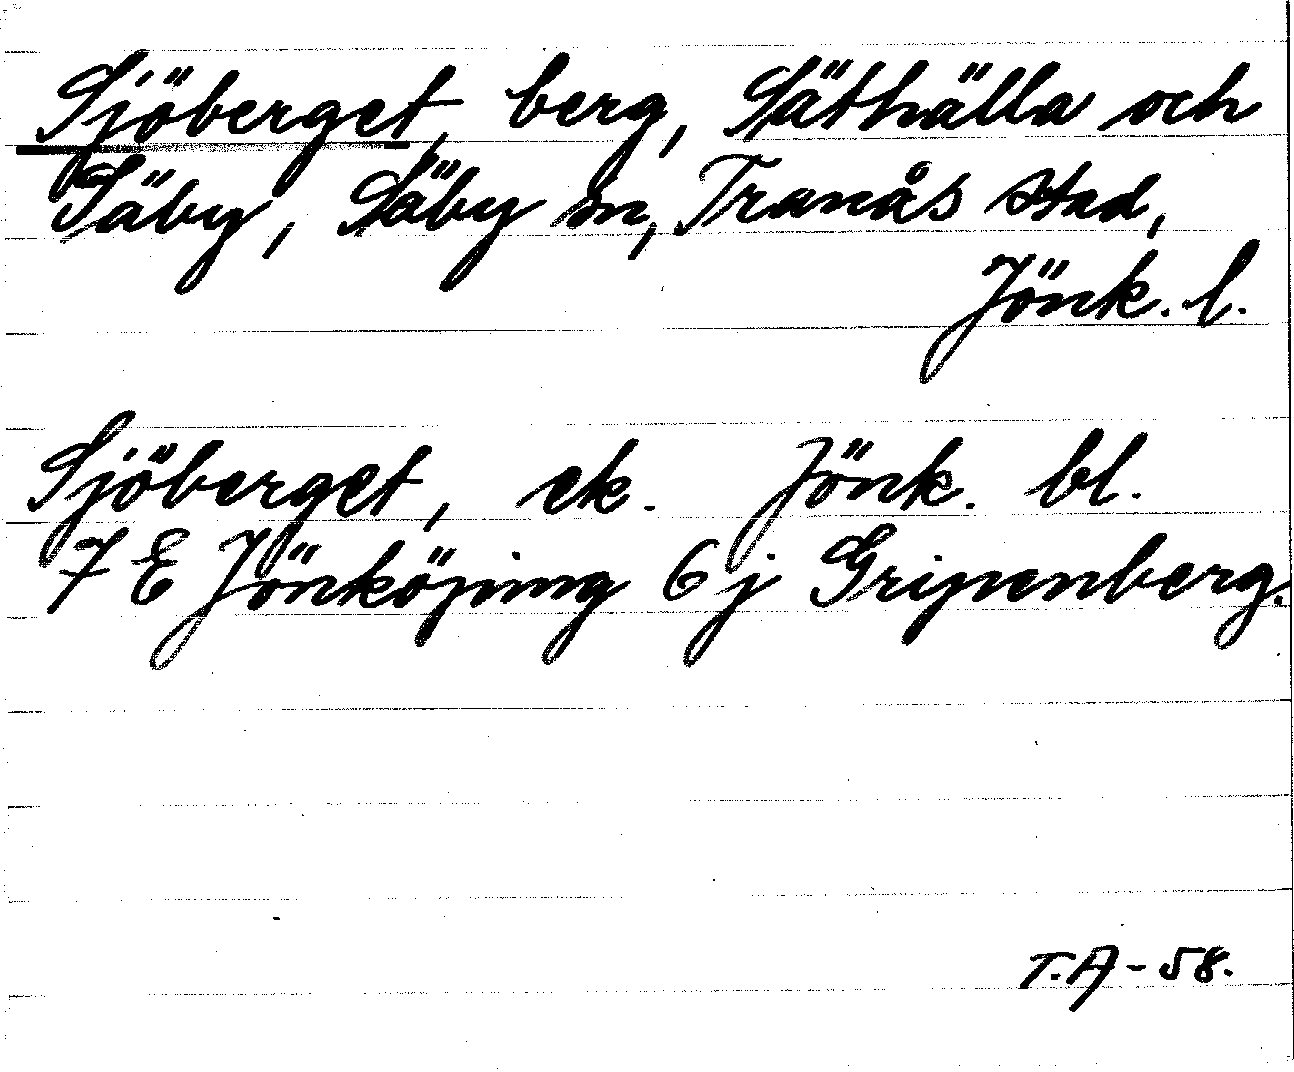 Sjöberget, berg, Säthälla och
Säby, Säby sn, Tranås stad,
Jönk. l.
Sjöberget, ek. Jönk. bl.
7 E Jönköping 6 j Gripenberg.
T.A-58.